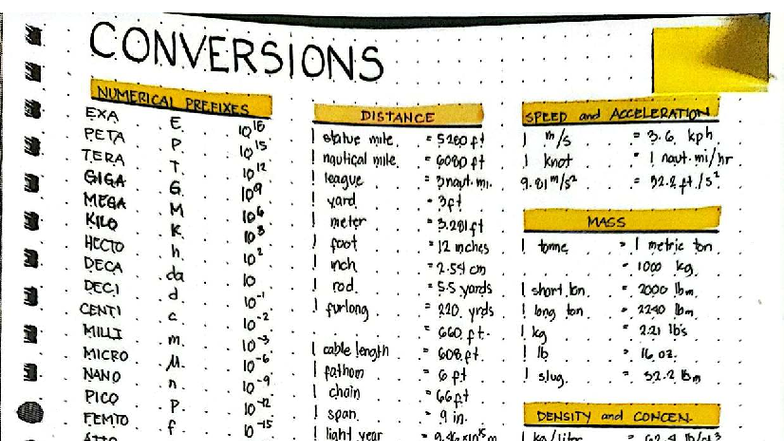 CONVERSIONS
NUMERICAL PREFIXES
EXA E 10^18
PETA P 10^15
TERA T 10^12
GIGA G 10^9
MEGA M 10^6
KILO K 10^3
HECTO h 10^2
DECA da 10
DECI d 10^-1
CENTI c 10^-2
MILLI m 10^-3
MICRO μ 10^-6
NANO n 10^-9
PICO P 10^-12
FEMTO f 10^-15
DISTANCE
1 statue mile = 5280 ft
1 nautical mile = 6080 ft
1 league = 3 naut. mi.
1 yard = 3 ft
1 meter = 3.281 ft
1 foot = 12 inches
1 inch = 2.54 cm
1 rod = 5.5 yards
1 furlong = 220 yrds
= 660 ft
1 cable length = 608 ft
1 fathom = 6 ft
1 chain = 66 ft
1 span = 9 in.
1 light year = 9.46x10^15 m
SPEED and ACCELERATION
1 m/s = 3.6 kph
1 knot = 1 naut. mi/hr
9.81 m/s² = 32.2 ft/s²
MASS
1 tonne = 1 metric ton
= 1000 kg
1 short ton = 2000 lbm
1 long ton = 2240 lbm
1 kg = 2.21 lbs
1 lb = 16 oz.
1 slug = 32.2 lbm
DENSITY and CONCEN.
1 kg/liter = 62.4 lb/ft³